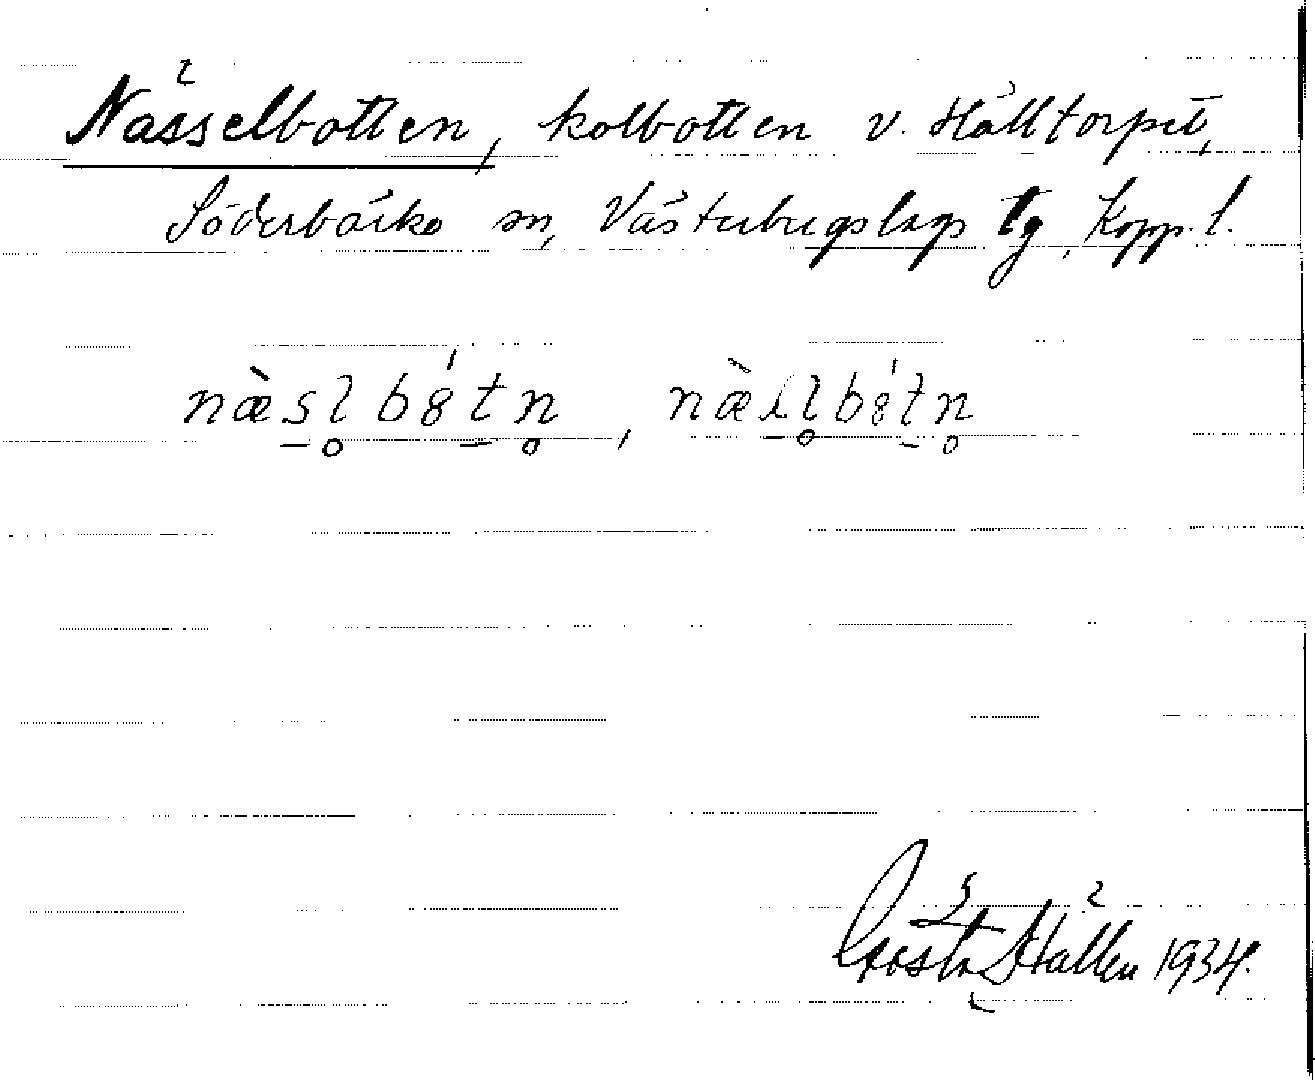 Nässelbotten, kolbotten v. Hälltorpet,
Söderbärke sn, Västerbergslags tg, Kopp. l.
næ̀sl̥bót̠n̥, næ̀sl̥bót̠n̥
Gösta Hallen 1934.